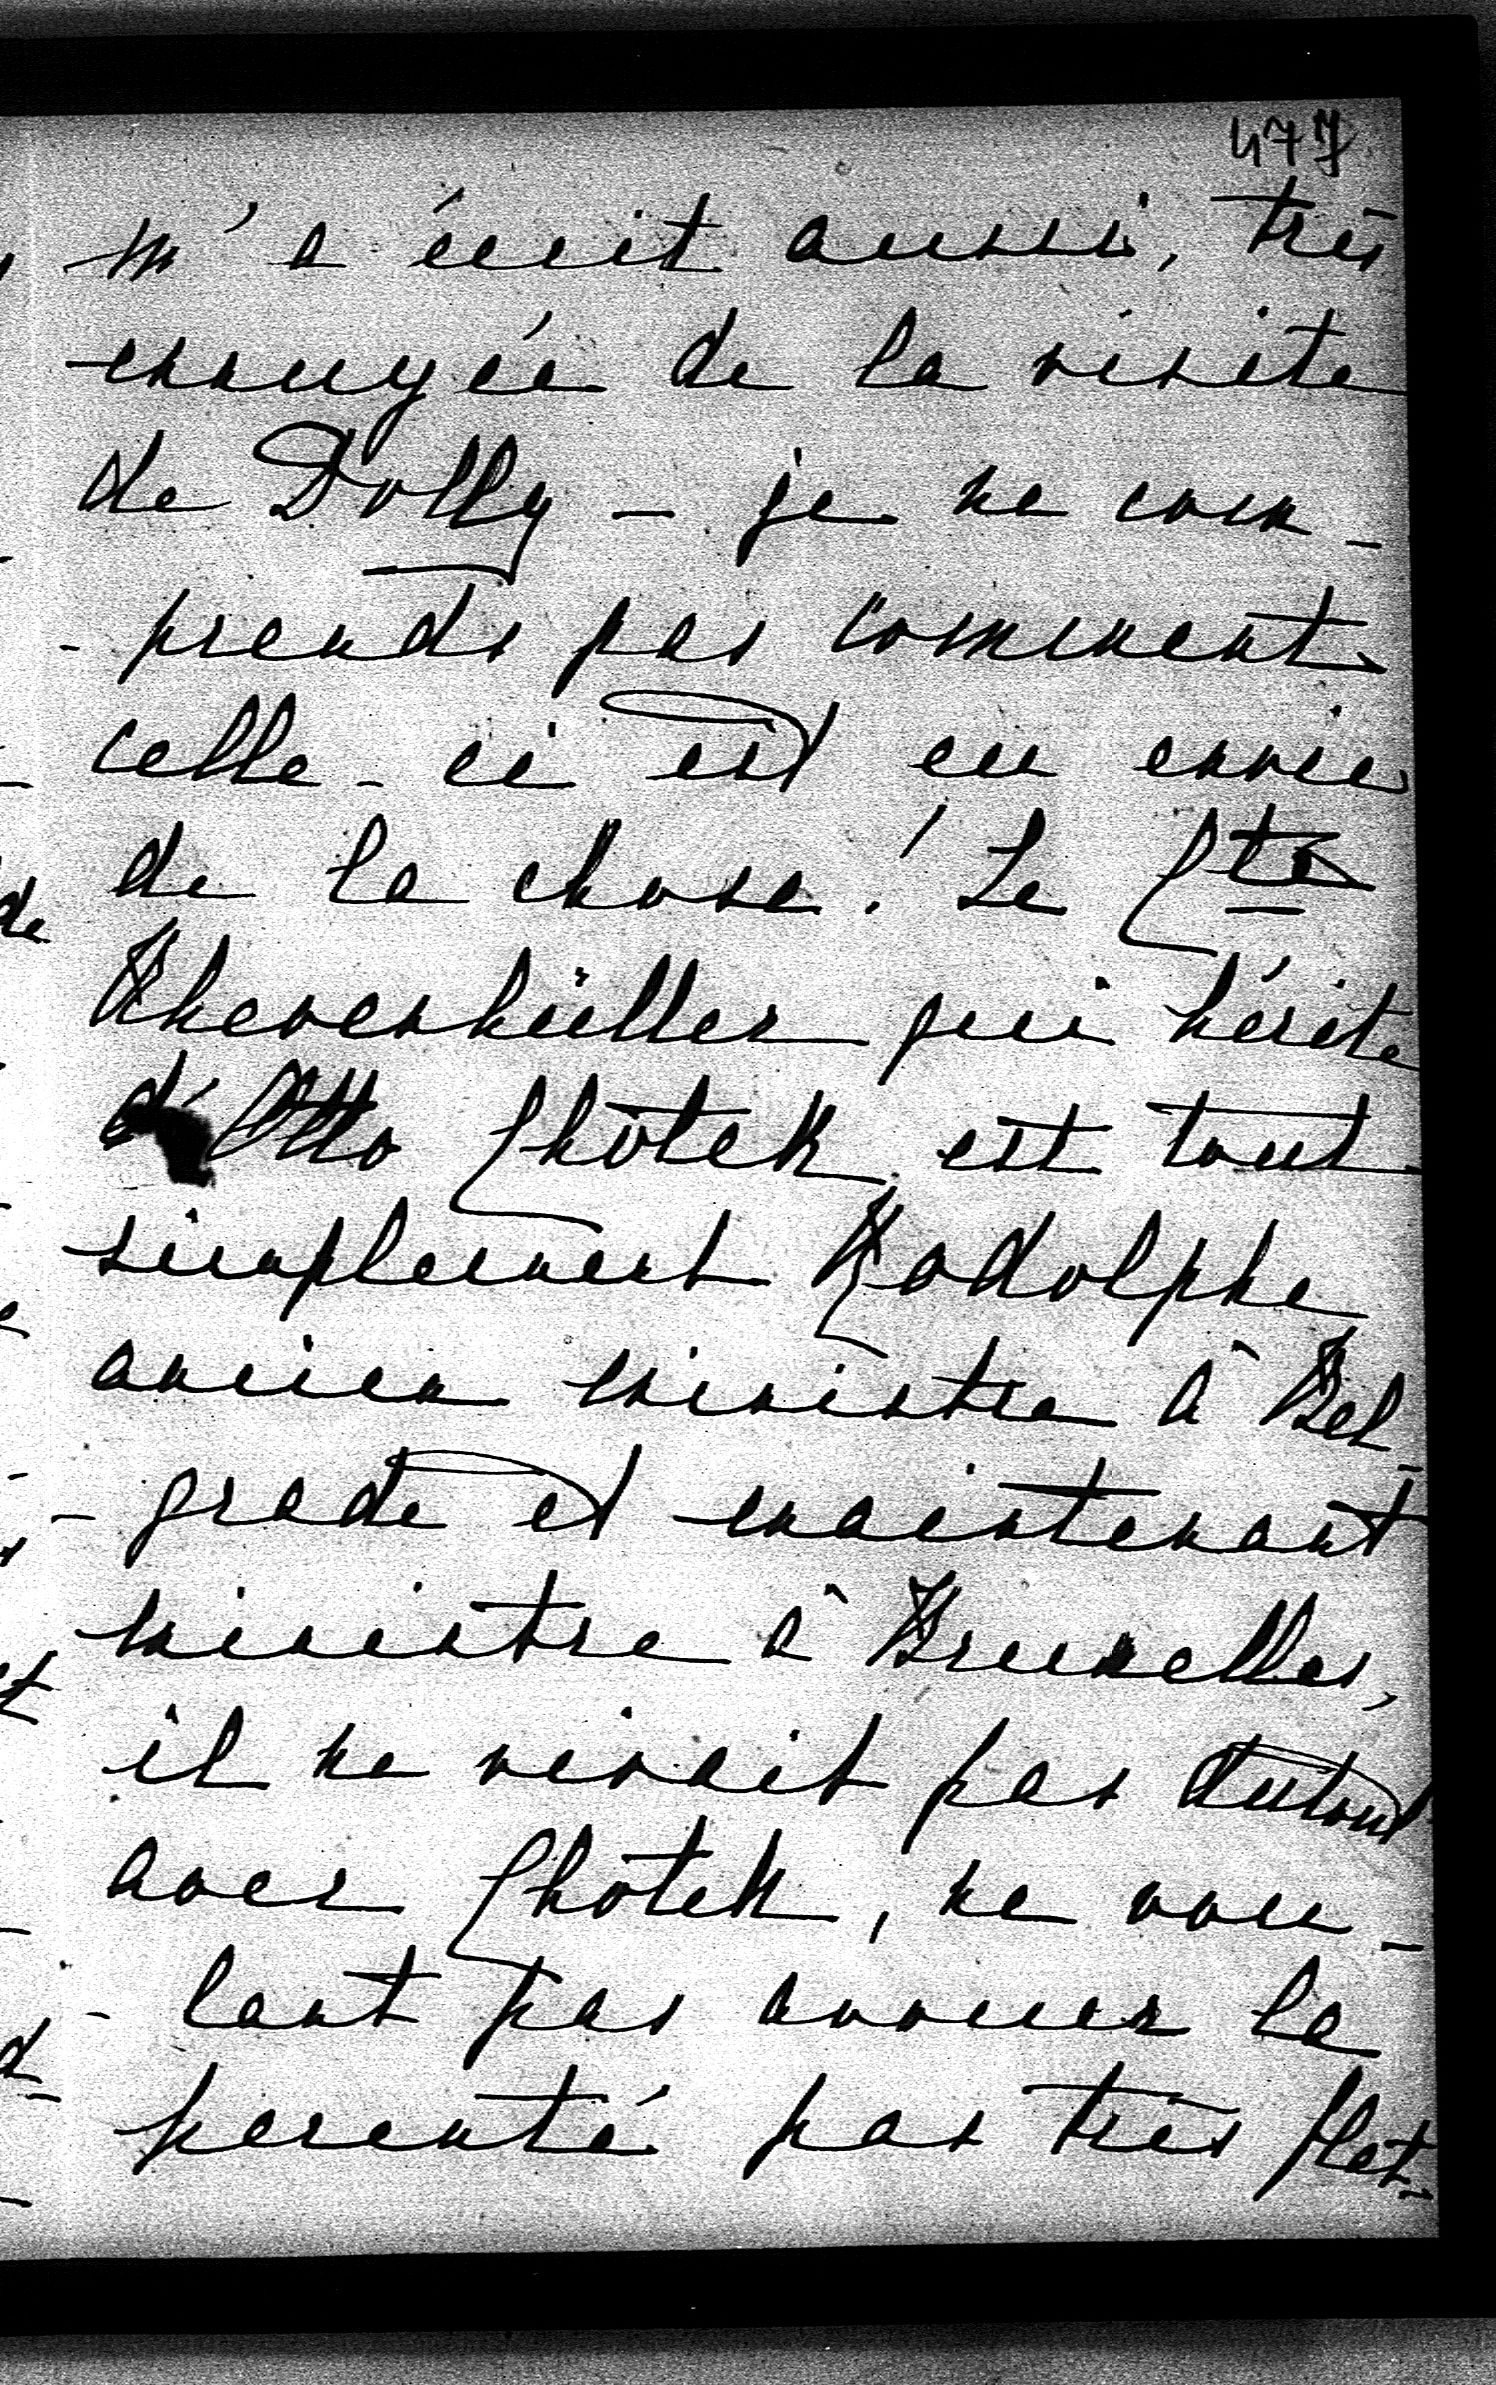 477
m'a écrit aussi, très
ennuyée de la visite
de Dolly - je ne com-
- prends pas comment
celle-ci est eu envie
de la chose! Le Cte
Khevenhüller qui hérite
d'Otto Chotek est tout
simplement Rodolphe
ancien ministre à Bel-
- grade et maintenant
ministre à Bruxelles,
il ne vivait pas dutout
avec Chotek, ne vou-
- lant pas avouer la
parenté pas très flat-